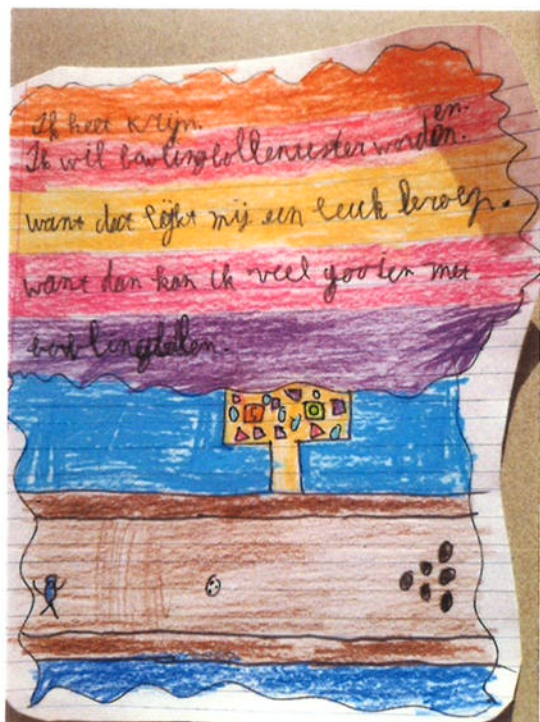 Ik heet Krijn.
en.
Ik wil bowlingbollentester worden.
want dat lijkt mij een leuk beroep.
want dan kan ik veel gooien met
bowlingballen.